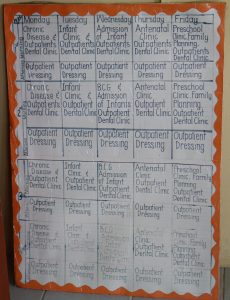 Monday Tuesday Wednesday Thursday Friday
Chronic Infant Admission Antenatal Preschool
Disease & Clinic & of Clinic Clinic, Family
Outpatients Outpatient Infants Outpatient Planning
Dental Clinic Dental Clinic Outpatient Dental Clinic Outpatients
Dental Clinic Dental Clinic
Outpatient Outpatient Outpatient Outpatient Outpatient
Dressing Dressing Dressing Dressing Dressing
Chronic Infant BCG & Antenatal Preschool
Disease & Clinic & Admission Clinic Clinic, Family
Outpatients Outpatient of Infants Outpatient Planning
Dental Clinic Dental Clinic Outpatient Dental Clinic Outpatient
Dental Clinic Dental Clinic
Outpatient Outpatient Outpatient Outpatient Outpatient
Dressing Dressing Dressing Dressing Dressing
Chronic Infant BCG & Antenatal Preschool
Disease & Clinic & Admission Clinic Clinic, Family
Outpatient Outpatient of Infant Outpatient Planning
Dental Clinic Dental Clinic Outpatient Dental Clinic Outpatient
Dental Clinic Dental Clinic
Outpatient Outpatient Outpatient Outpatient Outpatient
Dressing Dressing Dressing Dressing Dressing
Chronic Infant BCG & Antenatal Preschool
Disease & Clinic Clinic, Family
Outpatient Planning
Dental Clinic Outpatient
Dental Clinic
Outpatient Outpatient Outpatient Outpatient Outpatient
Dressing Dressing Dressing Dressing Dressing